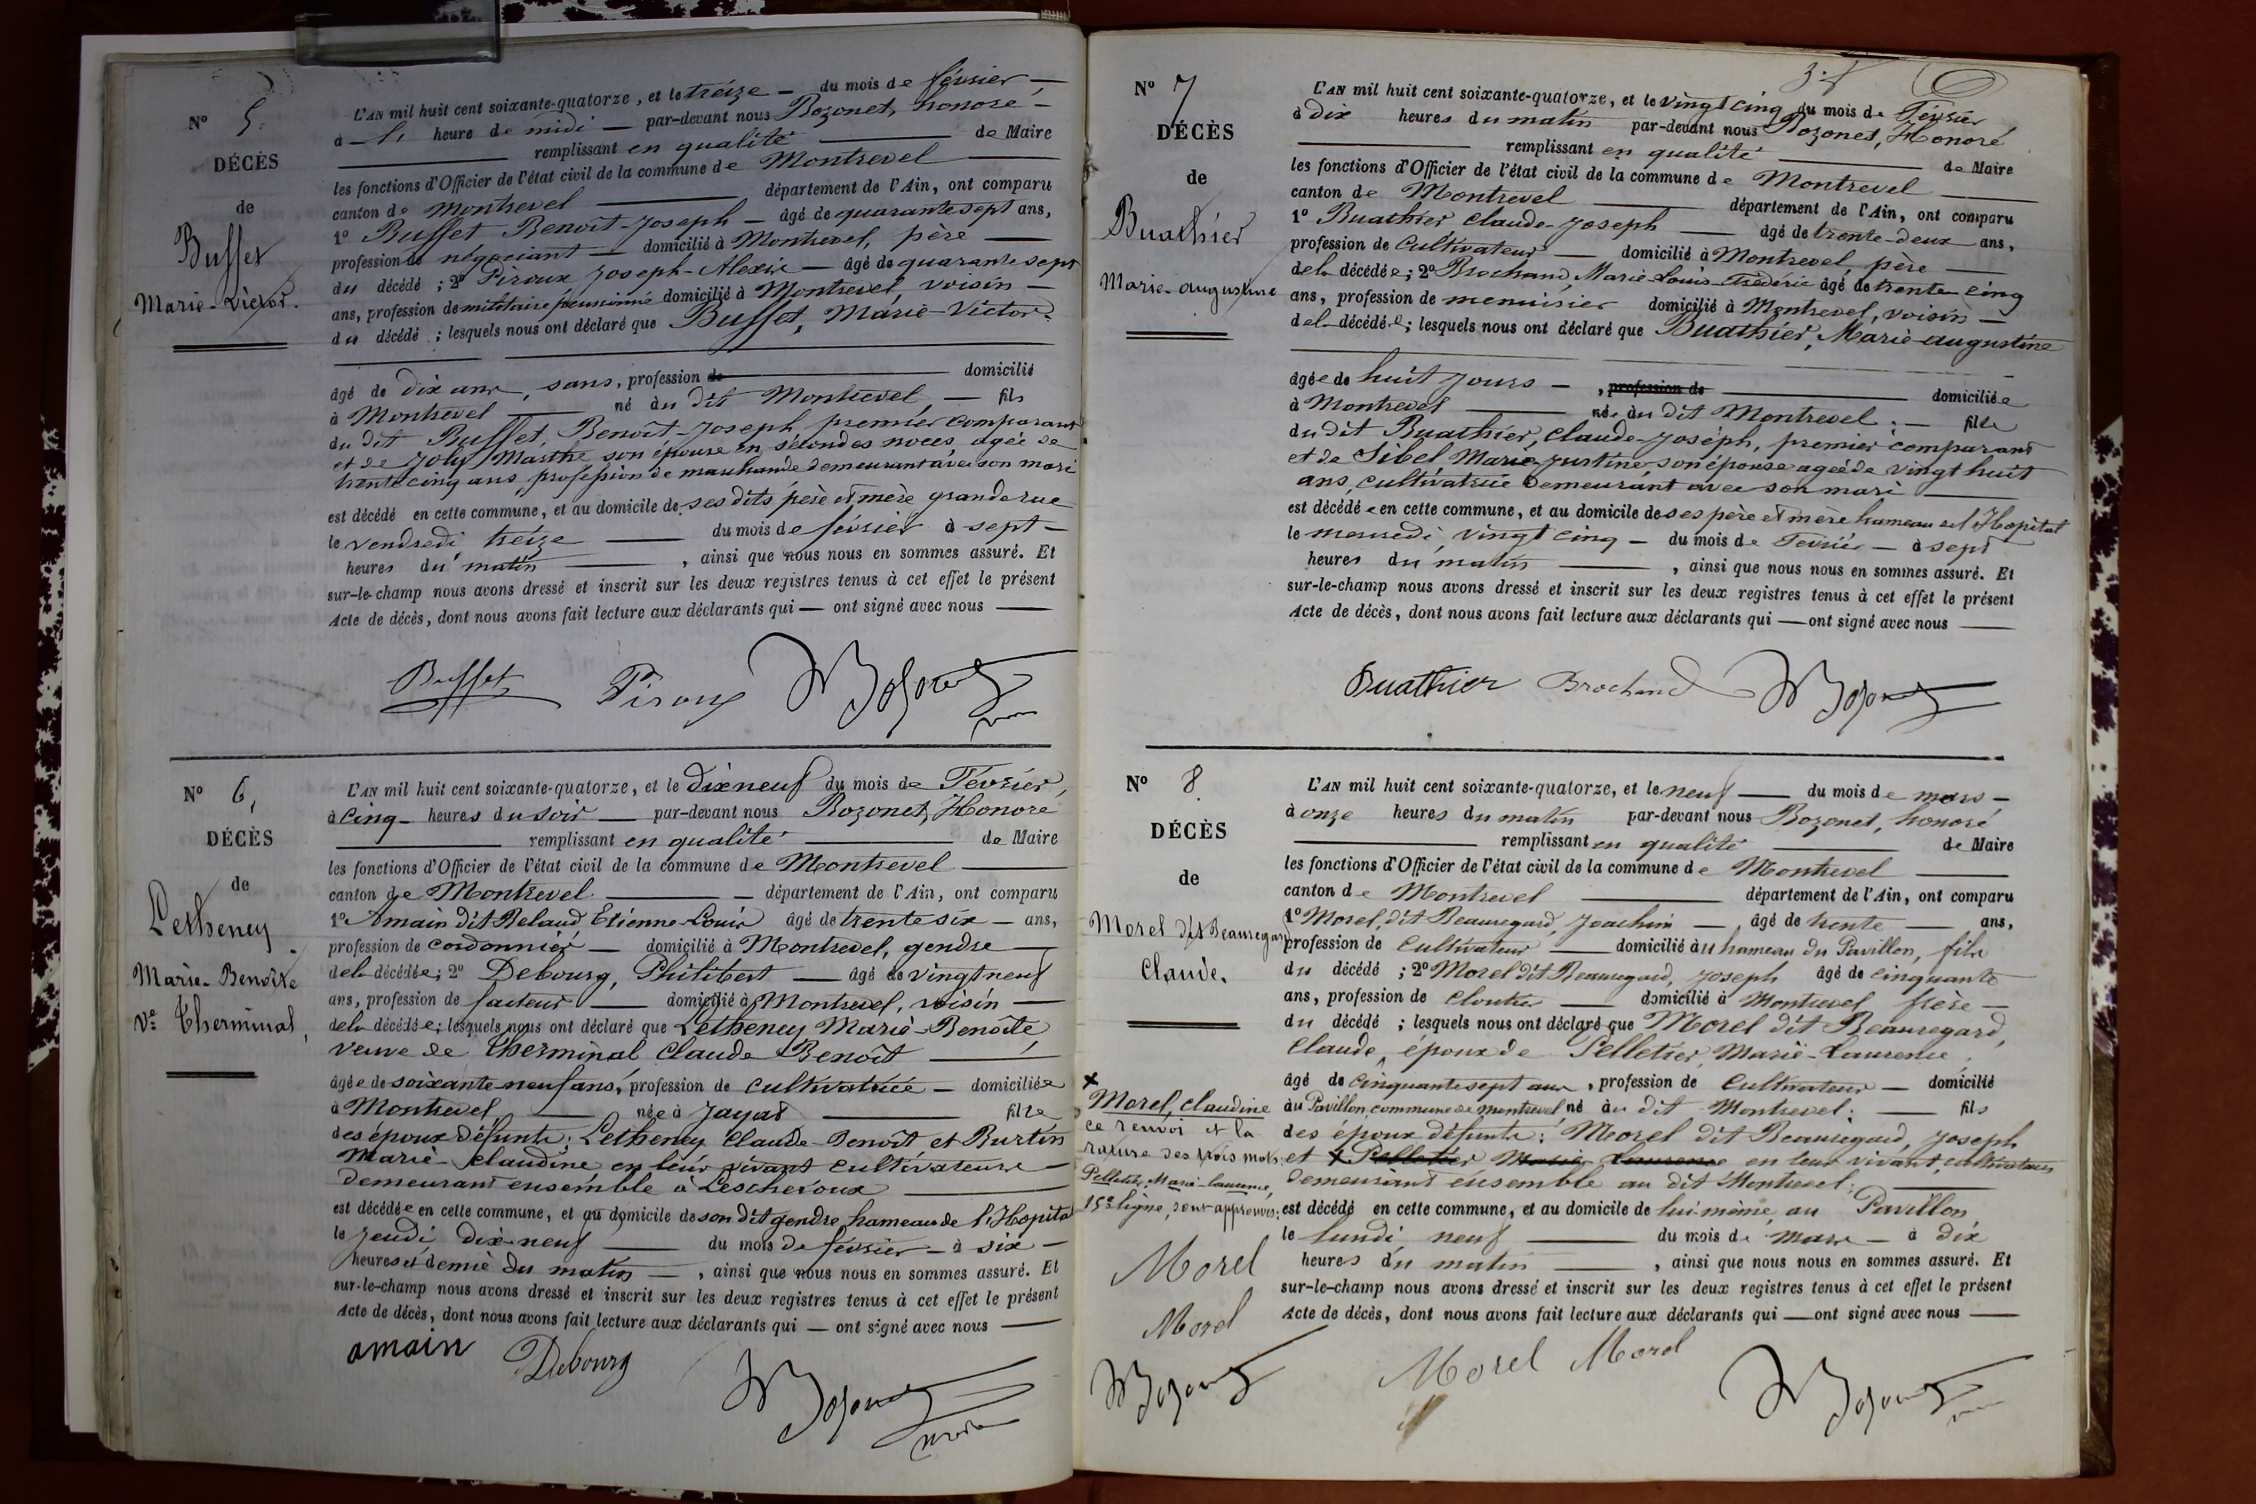 N° 5.
DÉCÈS
de
Buffet
Marie-Victor.
L'AN mil huit cent soixante-quatorze, et le treize — du mois de février —
à heure de midi — par-devant nous Bozonet, honoré —
remplissant en qualité de Maire
les fonctions d'Officier de l'état civil de la commune de Montrevel
canton de Montrevel département de l'Ain, ont comparu
1° Buffet Benoît-Joseph — âgé de quarante sept ans,
profession de négociant — domicilié à Montrevel, père —
du décédé ; 2° Piroux Joseph-Alexis — âgé de quarante sept
ans, profession de militaire pensionné domicilié à Montrevel, voisin —
du décédé ; lesquels nous ont déclaré que Buffet, Marie-Victor.
âgé de dix ans, sans, profession de domicilié
à Montrevel né au dit Montrevel, — fils
du dit Buffet, Benoît-Joseph premier comparant
et de Joly Marthe son épouse en secondes noces, agée de
trente cinq ans, profession de marchande demeurant avec son mari
est décédé en cette commune, et au domicile de ses dits père et mère grande rue
le vendredi treize du mois de février à sept —
heures du matin , ainsi que nous nous en sommes assuré. Et
sur-le-champ nous avons dressé et inscrit sur les deux registres tenus à cet effet le présent
Acte de décès, dont nous avons fait lecture aux déclarants qui — ont signé avec nous
Buffet Piroux Bozonet
N° 6,
DÉCÈS
de
Letheney
Marie-Benoîte
Ve Therminal,
L'AN mil huit cent soixante-quatorze, et le dix neuf du mois de Février,
à cinq — heures du soir — par-devant nous Bozonet, Honoré
remplissant en qualité de Maire
les fonctions d'Officier de l'état civil de la commune de Montrevel
canton de Montrevel département de l'Ain, ont comparu
1° Amain dit Relaud Etienne-Louis âgé de trente six — ans,
profession de cordonnier — domicilié à Montrevel, gendre
de la décédée ; 2° Debourg, Philibert — âgé de vingt neuf
ans, profession de facteur — domicilié à Montrevel, voisin —
de la décédée ; lesquels nous ont déclaré que Letheney Marie-Benoîte,
veuve de Therminal Claude Benoît
âgée de soixante-neuf ans, profession de cultivatrice — domiciliée
à Montrevel, née à Jayat fille
des époux défunts : Letheney Claude-Benoît et Burtin
Marie-Claudine en leur vivant cultivateurs —
demeurant ensemble à Lescheroux
est décédée en cette commune, et au domicile de son dit gendre, hameau de l'Hopital
le jeudi dix-neuf du mois de février — à six —
heures et demie du matin — , ainsi que nous nous en sommes assuré. Et
sur-le-champ nous avons dressé et inscrit sur les deux registres tenus à cet effet le présent
Acte de décès, dont nous avons fait lecture aux déclarants qui — ont signé avec nous
amain Debourg Bozonet
N° 7
DÉCÈS
de
Buathier
Marie-augustine
L'AN mil huit cent soixante-quatorze, et le vingt cinq du mois de Février
à dix heures du matin par-devant nous Bozonet, Honoré
remplissant en qualité de Maire
les fonctions d'Officier de l'état civil de la commune de Montrevel
canton de Montrevel département de l'Ain, ont comparu
1° Buathier Claude-Joseph âgé de trente-deux ans,
profession de cultivateur — domicilié à Montrevel, père —
de la décédée ; 2° Brochand, Marie-Louis-Frédéric âgé de trente cinq
ans, profession de menuisier domicilié à Montrevel, voisin —
de la décédée ; lesquels nous ont déclaré que Buathier, Marie-augustine
âgée de huit jours — , profession de domiciliée
à Montrevel née au dit Montrevel. — fille
du dit Buathier, Claude-Joseph, premier comparant
et de Sibel Marie-Justine son épouse agée de vingt huit
ans, cultivatrice demeurant avec son mari
est décédée en cette commune, et au domicile de ses père et mère hameau de l'Hopital
le mercredi vingt cinq — du mois de Février — à sept
heures du matin , ainsi que nous nous en sommes assuré. Et
sur-le-champ nous avons dressé et inscrit sur les deux registres tenus à cet effet le présent
Acte de décès, dont nous avons fait lecture aux déclarants qui — ont signé avec nous
Buathier Brochand Bozonet
N° 8
DÉCÈS
de
Morel dit Beauregard
Claude.
L'AN mil huit cent soixante-quatorze, et le neuf — du mois de mars —
à onze heures du matin par-devant nous Bozonet, honoré
remplissant en qualité de Maire
les fonctions d'Officier de l'état civil de la commune de Montrevel
canton de Montrevel département de l'Ain, ont comparu
1° Morel, dit Beauregard Joachim — âgé de trente ans,
profession de cultivateur — domicilié au hameau du Pavillon, fils
du décédé ; 2° Morel dit Beauregard, Joseph âgé de cinquante
ans, profession de cloutier — domicilié à Montrevel frère —
du décédé ; lesquels nous ont déclaré que Morel dit Beauregard,
Claude, époux de Pelletier Marie-Laurence,
âgé de cinquante sept ans, profession de cultivateur — domicilié
au Pavillon commune de Montrevel né au dit Montrevel; — fils
des époux défunts : Morel dit Beauregard, Joseph
et x Pelletier Marie Laurence en leur vivant, cultivateurs
demeurant ensemble au dit Montrevel;
est décédé en cette commune, et au domicile de lui-même, au Pavillon
le lundi neuf du mois de mars — à dix
heures du matin , ainsi que nous nous en sommes assuré. Et
sur-le-champ nous avons dressé et inscrit sur les deux registres tenus à cet effet le présent
Acte de décès, dont nous avons fait lecture aux déclarants qui — ont signé avec nous
Morel Morel Bozonet
x
Morel, Claudine
ce renvoi et la
rature des trois mots
Pelletier, Marie-Laurence,
15e ligne, sont approuvés:
Morel
Morel
Bozonet